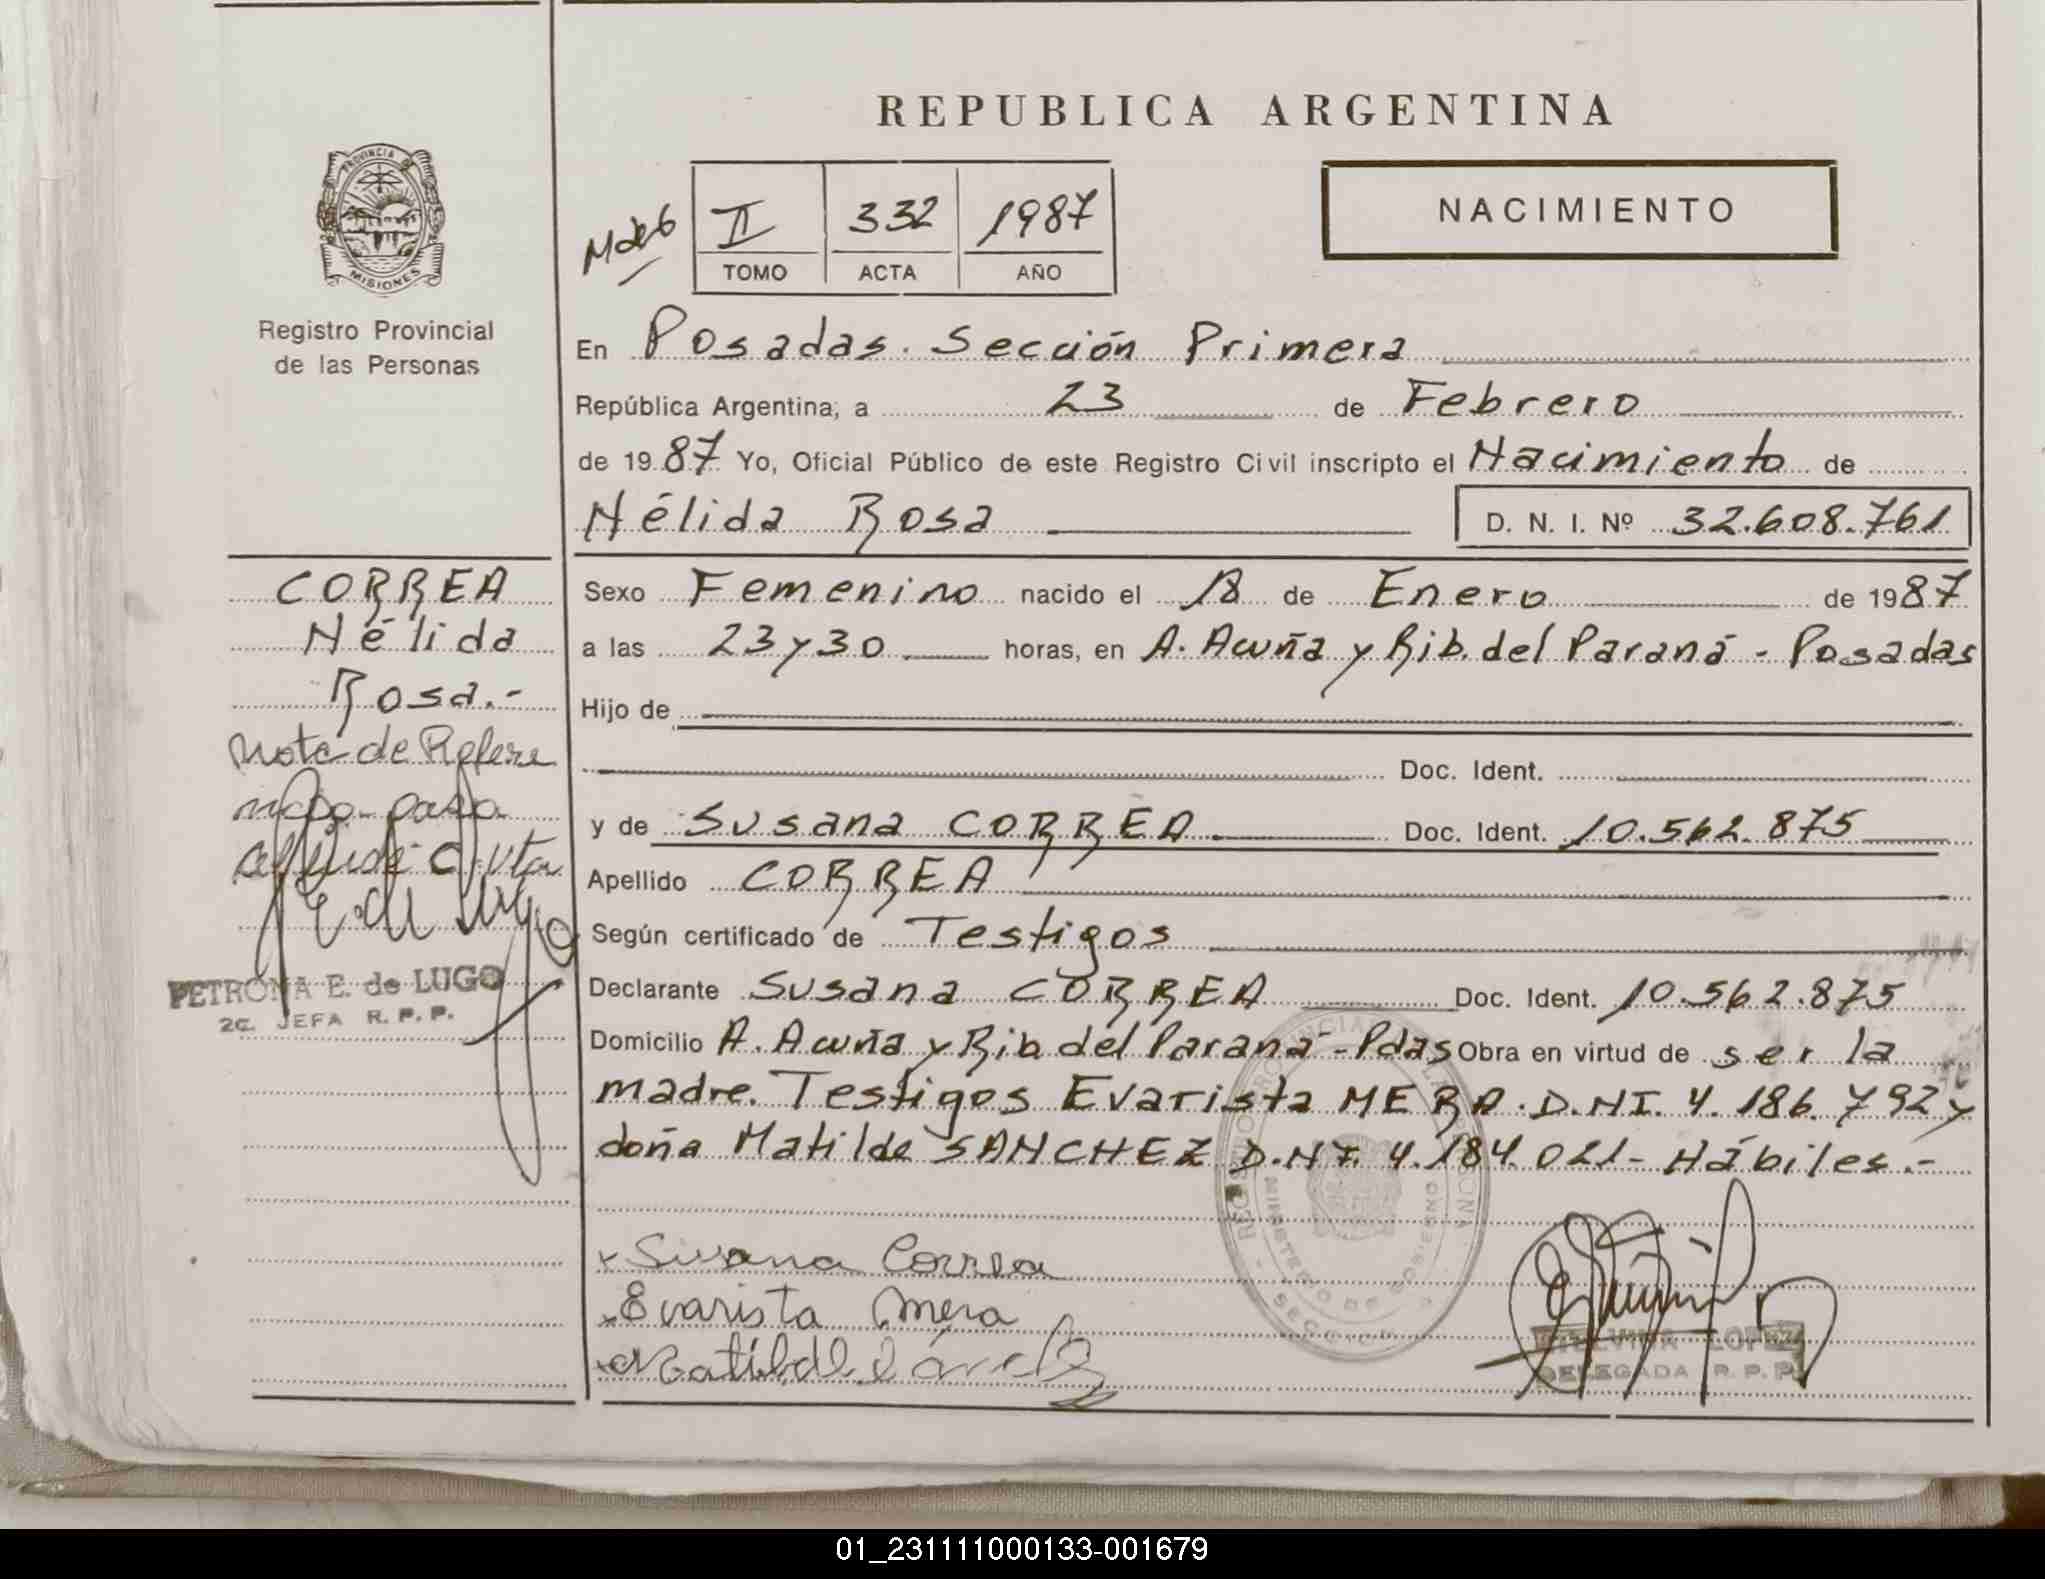 REPUBLICA ARGENTINA
PROVINCIA DE
MISIONES
Registro Provincial
de las Personas
II 332 1987
TOMO ACTA AÑO
NACIMIENTO
En Posadas. Sección Primera
República Argentina, a 23 de Febrero
de 1987 Yo, Oficial Público de este Registro Civil inscripto el Nacimiento de
Nélida Rosa D. N. I. Nº 32.608.761
CORREA
Nélida
Rosa.-
Nota de Refere
PETRONA E. de LUGO
2C. JEFA R. P. P.
Sexo Femenino nacido el 18 de Enero de 1987
a las 23 y 30 horas, en A. Acuña y Rib. del Paraná - Posadas
Hijo de
Doc. Ident.
y de Susana CORREA Doc. Ident. 10.562.875
Apellido CORREA
Según certificado de Testigos
Declarante Susana CORREA Doc. Ident. 10.562.875
Domicilio A. Acuña y Rib. del Paraná - Pdas Obra en virtud de ser la
madre. Testigos Evarista MERA. D.NI. 4.186.792 y
doña Matilde SANCHEZ D.NI. 4.184.021 - Hábiles.-
x Susana Correa
x Evarista Mera
x Matilde
LOPEZ
DELEGADA R. P. P.
01_231111000133-001679